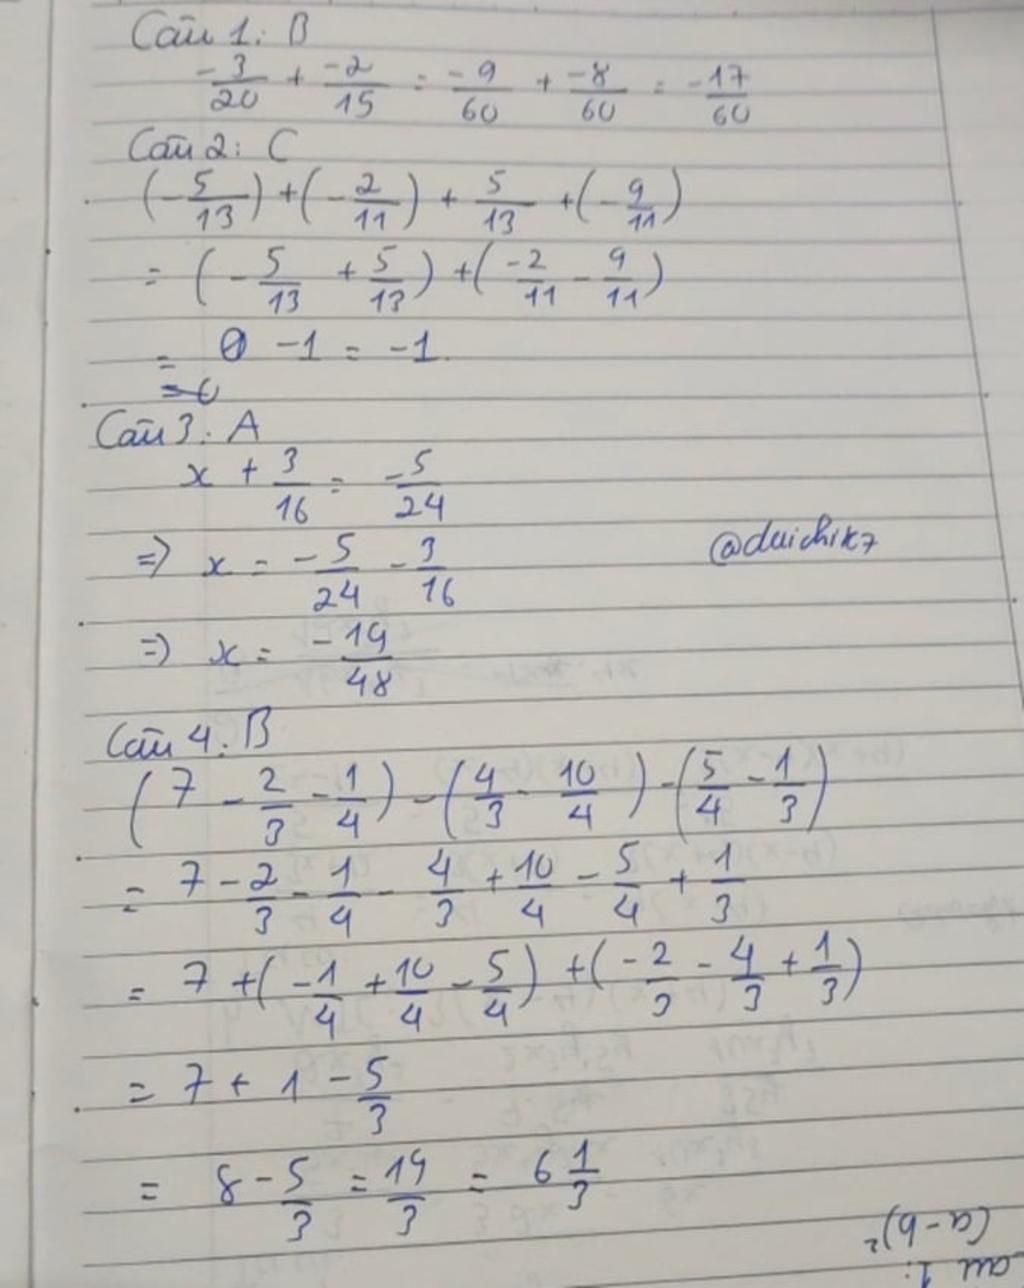 Câu 1: B
-3/20 + -2/15 = -9/60 + -8/60 = -17/60
Câu 2: C
(-5/13) + (-2/11) + 5/13 + (-9/11)
= (-5/13 + 5/13) + (-2/11 - 9/11)
= 0 - 1 = -1.
= 0
Câu 3: A
x + 3/16 = -5/24
=> x = -5/24 - 3/16
@duichik7
=> x = -19/48
Câu 4: B
(7 - 2/3 - 1/4) - (4/3 - 10/4) - (5/4 - 1/3)
= 7 - 2/3 - 1/4 - 4/3 + 10/4 - 5/4 + 1/3
= 7 + (-1/4 + 10/4 - 5/4) + (-2/3 - 4/3 + 1/3)
= 7 + 1 - 5/3
= 8 - 5/3 = 19/3 = 6 1/3
(a-b)²